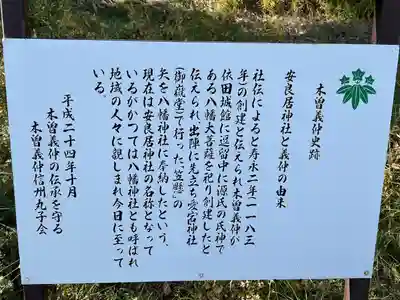 木曽義仲史跡
安良居神社と義仲の由来
社伝によると寿永二年(一一八三
年)の創建と伝えられ木曽義仲が
依田城館に逗留中に源氏の氏神で
ある八幡大菩薩を祀り創建したと
伝えられ、出陣に先立ち愛宕神社
(御嶽堂)で行った「笠懸」の
矢を八幡神社に奉納したという。
現在は安良居神社の名称となって
いるがかつては八幡神社とも呼ばれ
地域の人々に親しまれ今日に至って
いる。
平成二十四年十月
木曽義仲の伝承を守る
木曽義仲信州丸子会